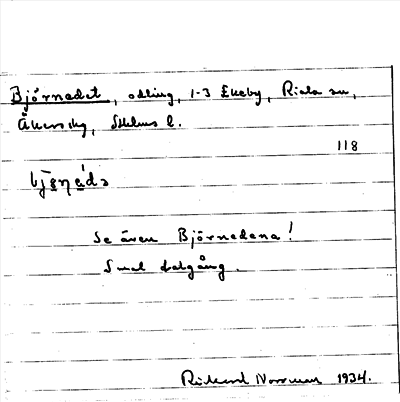 Björnedet, odling, 1-3 Ekeby, Riala sn,
Åkers skg, Sthlms l.
118
Se även Björnedena!
Smal dalgång.
Rickard Norrman 1934.